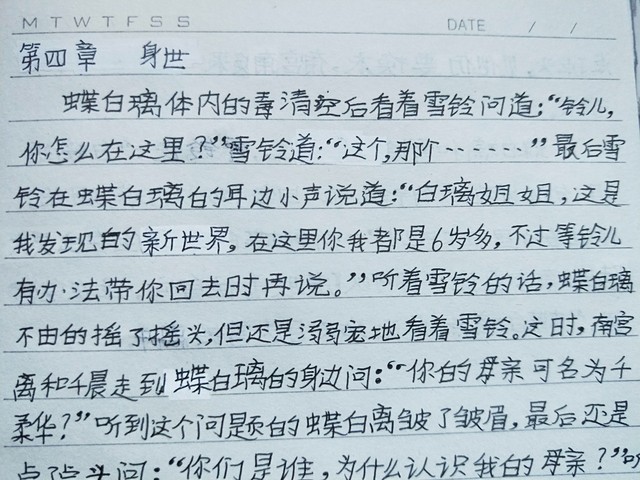 M T W T F S S DATE / /
第四章 身世
蝶白璃体内的毒清空后看着雪铃问道:“铃儿,
你怎么在这里?”雪铃道:“这个,那个……”最后雪
铃在蝶白璃白的耳边小声说道:“白璃姐姐,这是
我发现的新世界,在这里你我都是6岁多,不过等铃儿
有办法带你回去时再说。”听着雪铃的话,蝶白璃
不由的摇了摇头,但还是溺宠地看着雪铃。这时,南宫
离和千晨走到蝶白璃的身边问:“你的母亲可名为千
柔华?”听到这个问题的蝶白离皱了皱眉,最后还是
点头问:“你们是谁,为什么认识我的母亲?”